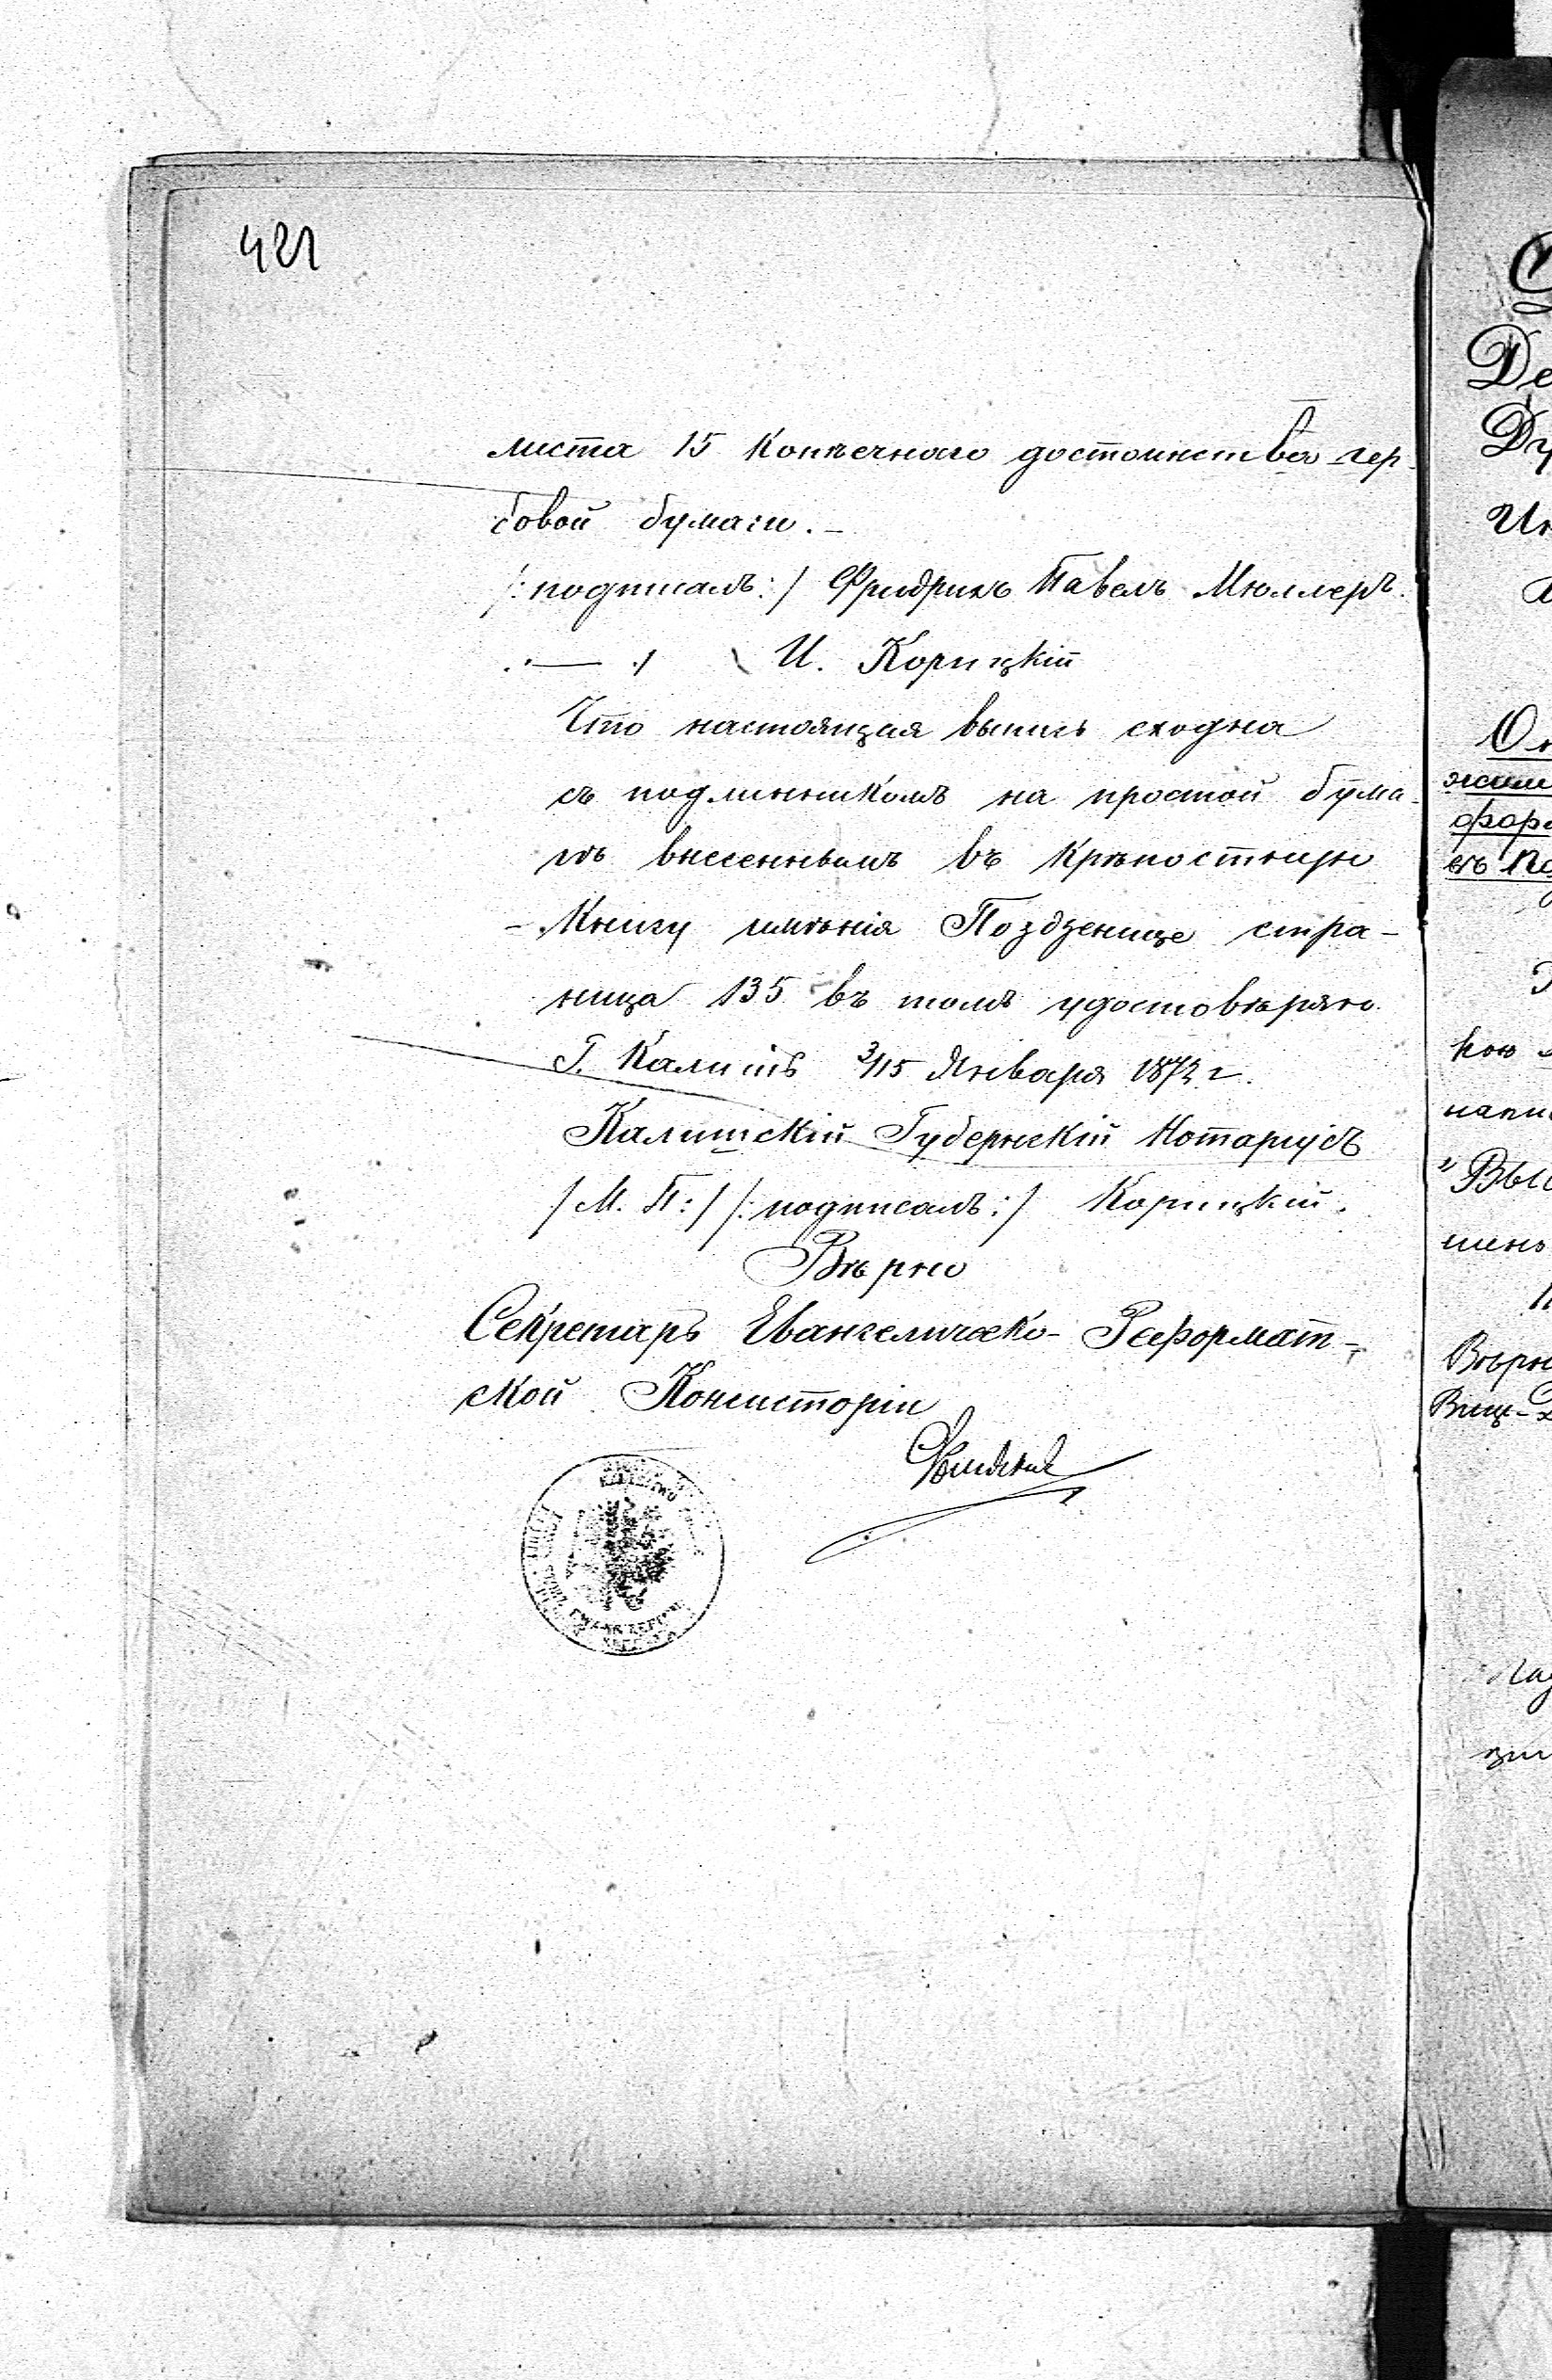 421
листа 15 копѣечнаго достоинства гер-
бовой бумаги. –
/: подписалъ :/ Фридрихъ Павелъ Мюллеръ.
.— :/ И. Корицкій
Что настоящая выпись сходна
съ подлинникомъ на простой бума-
гѣ внесеннымъ въ крѣпостную
книгу имѣнія Поздзенице стра-
ница 135 въ томъ удостовѣряю.
Г. Калишъ 3/15 Января 1872 г.
Калишскій Губернскій Нотаріусъ
/ М. П: / /: подписалъ :/ Корицкій.
Вѣрно
Секретарь Евангелическо-Реформат-
ской Консисторіи
Де
Ду
жит
форм
кою
напи
"Вы
Вѣрн
Виц-